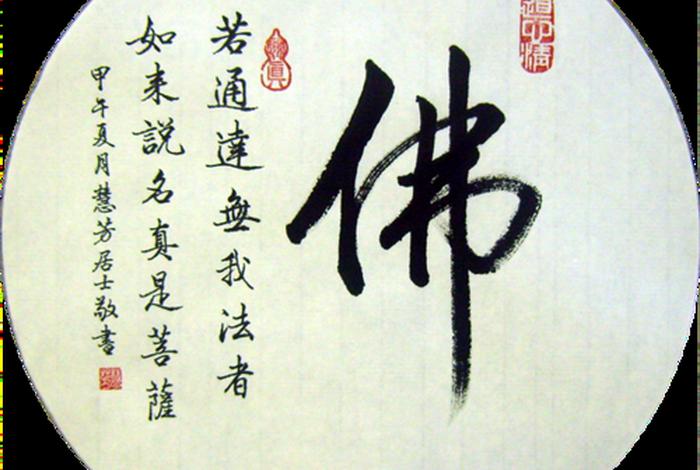 佛
若通達無我法者
如来説名真是菩薩
甲午夏月慧芳居士敬書